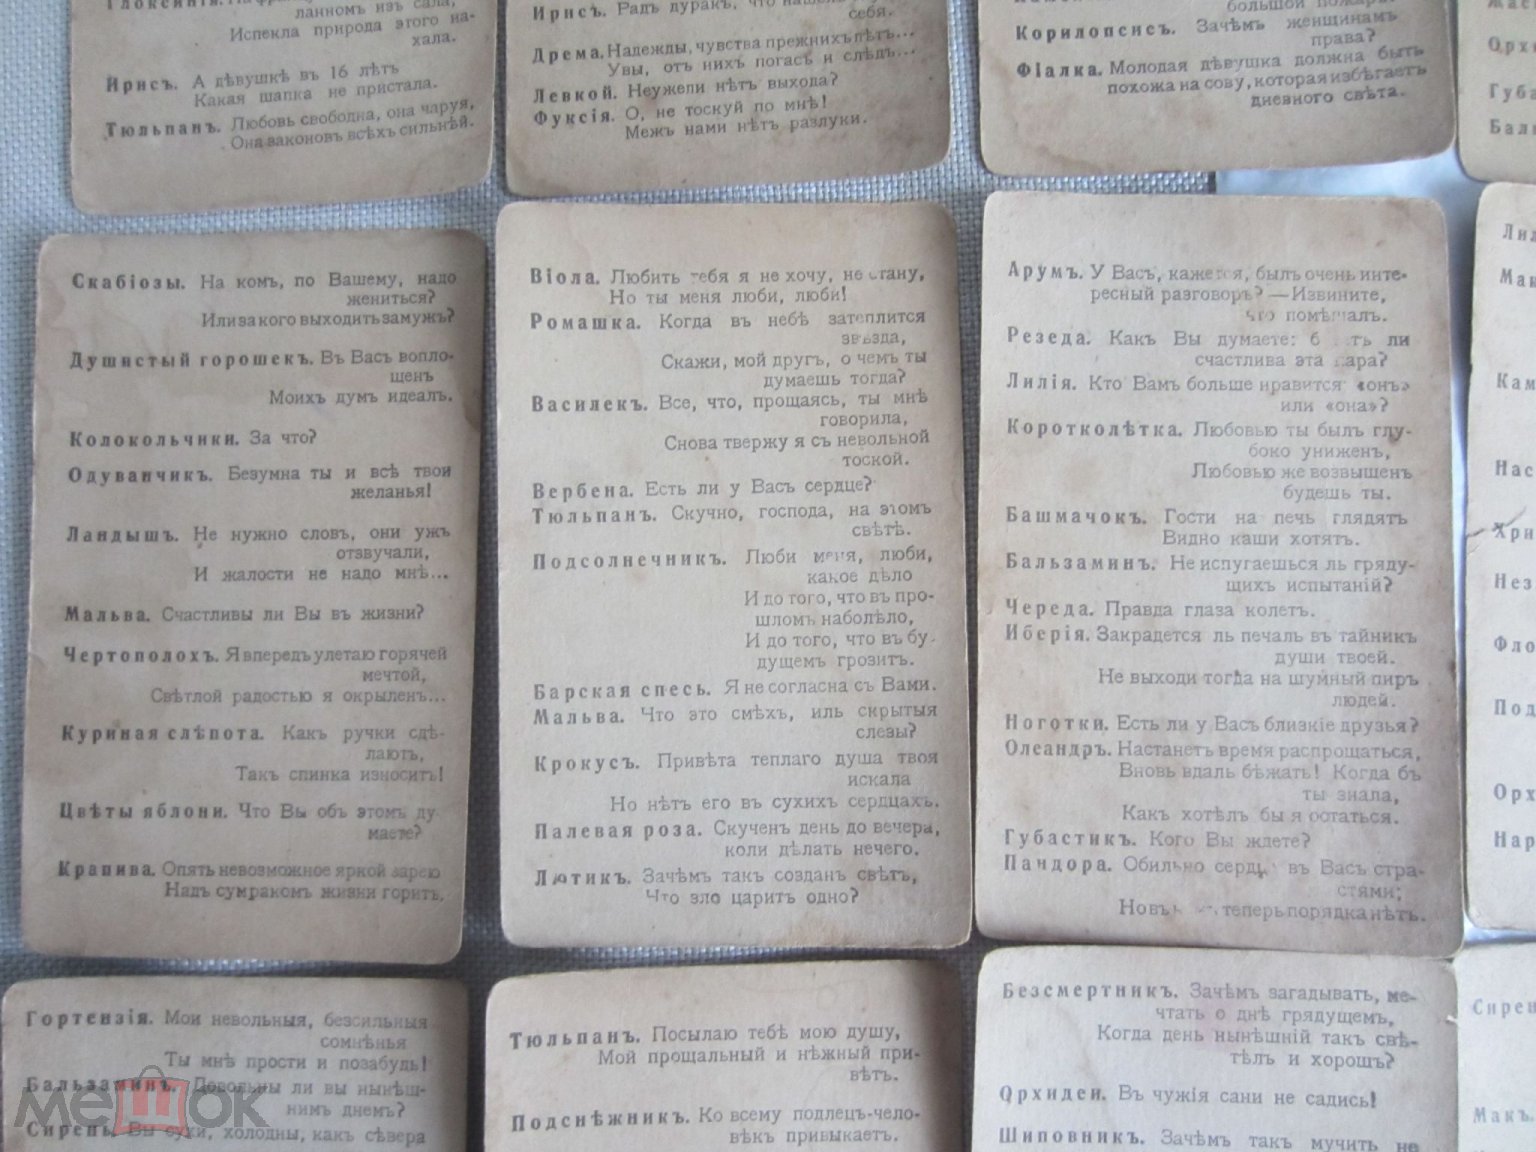 ланномъ изъ сала,
Испекла природа этого на-
хала.
Ирисъ. А дѣвушкѣ въ 16 лѣтъ
Какая шапка не пристала.
Тюльпанъ. Любовь свободна, она чаруя,
Она законовъ всѣхъ сильнѣй.
Ирисъ. Радъ дуракъ, что нашелъ
себя.
Дрема. Надежды, чувства прежнихъ лѣтъ...
Увы, отъ нихъ погасъ и слѣдъ...
Левкой. Неужели нѣтъ выхода?
Фуксія. О, не тоскуй по мнѣ!
Межъ нами нѣтъ разлуки.
Корилопсисъ. Зачѣмъ женщинамъ
права?
Фіалка. Молодая дѣвушка должна быть
похожа на сову, которая избѣгаетъ
дневного свѣта.
Скабіозы. На комъ, по Вашему, надо
жениться?
Или за кого выходить замужъ?
Душистый горошекъ. Въ Васъ вопло-
щенъ
Моихъ думъ идеалъ.
Колокольчики. За что?
Одуванчикъ. Безумна ты и всѣ твои
желанья!
Ландышъ. Не нужно словъ, они ужъ
отзвучали,
И жалости не надо мнѣ...
Мальва. Счастливы ли Вы въ жизни?
Чертополохъ. Я впередъ улетаю горячей
мечтой,
Свѣтлой радостью я окрыленъ...
Куриная слѣпота. Какъ ручки сдѣ-
лаютъ,
Такъ спинка износитъ!
Цвѣты яблони. Что Вы объ этомъ ду
маете?
Крапива. Опять невозможное яркой зарею
Надъ сумракомъ жизни горитъ,
Віола. Любить тебя я не хочу, не стану,
Но ты меня люби, люби!
Ромашка. Когда въ небѣ затеплится
звѣзда,
Скажи, мой другъ, о чемъ ты
думаешь тогда?
Василекъ. Все, что, прощаясь, ты мнѣ
говорила,
Снова твержу я съ невольной
тоской.
Вербена. Есть ли у Васъ сердце?
Тюльпанъ. Скучно, господа, на этомъ
свѣтѣ.
Подсолнечникъ. Люби меня, люби,
какое дѣло
И до того, что въ про-
шломъ наболѣло,
И до того, что въ бу-
дущемъ грозитъ.
Барская спесь. Я не согласна съ Вами.
Мальва. Что это смѣхъ, иль скрытыя
слезы?
Крокусъ. Привѣта теплаго душа твоя
искала
Но нѣтъ его въ сухихъ сердцахъ.
Палевая роза. Скученъ день до вечера,
коли дѣлать нечего.
Лютикъ. Зачѣмъ такъ созданъ свѣтъ,
Что зло царитъ одно?
Арумъ. У Васъ, кажется, былъ очень инте-
ресный разговоръ? — Извините,
что помѣшалъ.
Резеда. Какъ Вы думаете: быть ли
счастлива эта пара?
Лилія. Кто Вамъ больше нравится «онъ»
или «она»?
Коротколѣтка. Любовью ты былъ глу-
боко униженъ,
Любовью же возвышенъ
будешь ты.
Башмачокъ. Гости на печь глядятъ
Видно каши хотятъ.
Бальзаминъ. Не испугаешься ль гряду-
щихъ испытаній?
Череда. Правда глаза колетъ.
Иберія. Закрадется ль печаль въ тайникъ
души твоей.
Не выходи тогда на шумный пиръ
людей.
Ноготки. Есть ли у Васъ близкіе друзья?
Олеандръ. Настанетъ время распрощаться,
Вновь вдаль бѣжать! Когда бъ
ты знала,
Какъ хотѣлъ бы я остаться.
Губастикъ. Кого Вы ждете?
Пандора. Обильно сердце въ Васъ стра-
стями;
теперь порядка нѣтъ.
Гортензія. Мои невольныя, безсильныя
сомнѣнья
Ты мнѣ прости и позабудь!
Бальзаминъ. Довольны ли вы нынѣш-
нимъ днемъ?
Сирень. Вы сухи, холодны, какъ сѣвера
Тюльпанъ. Посылаю тебѣ мою душу,
Мой прощальный и нѣжный при-
вѣтъ.
Подснѣжникъ. Ко всему подлецъ-чело-
вѣкъ привыкаетъ.
Безсмертникъ. Зачѣмъ загадывать, ме-
чтать о днѣ грядущемъ,
Когда день нынѣшній такъ свѣ-
тѣлъ и хорошъ?
Орхидеи. Въ чужія сани не садись!
Шиповникъ. Зачѣмъ такъ мучить не
Орхи
Губа
Лил
Мак
Кам
Нас
Хри
Нез
Фло
Под
Орх
Нар
Сирень
Макъ.
мешок